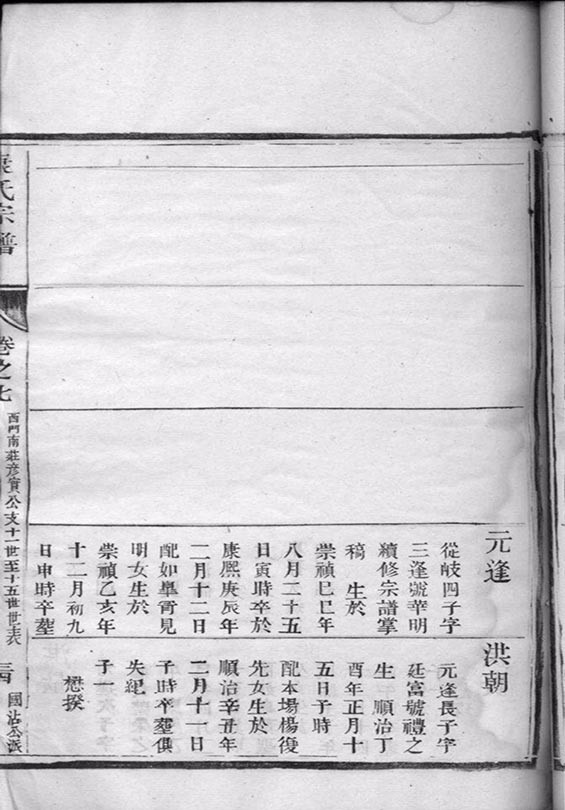 元逢
從岐四子字
三逢號華明
續修宗譜掌
稿 生於
崇禎巳巳年
八月二十五
日寅時卒於
康熙庚辰年
二月十二日
配如臯胥見
明女生於
崇禎乙亥年
十二月初九
日申時卒塟
洪朝
元逢長子字
廷富號禮之
生 順治丁
酉年正月十
五日子時
配本場楊復
先女生於
順治辛丑年
二月十一日
子時卒塟俱
失紀
子一
懋揆
氏宗譜
卷之七
西門南莊彥實公支十一世至十五世世表
國沾公派